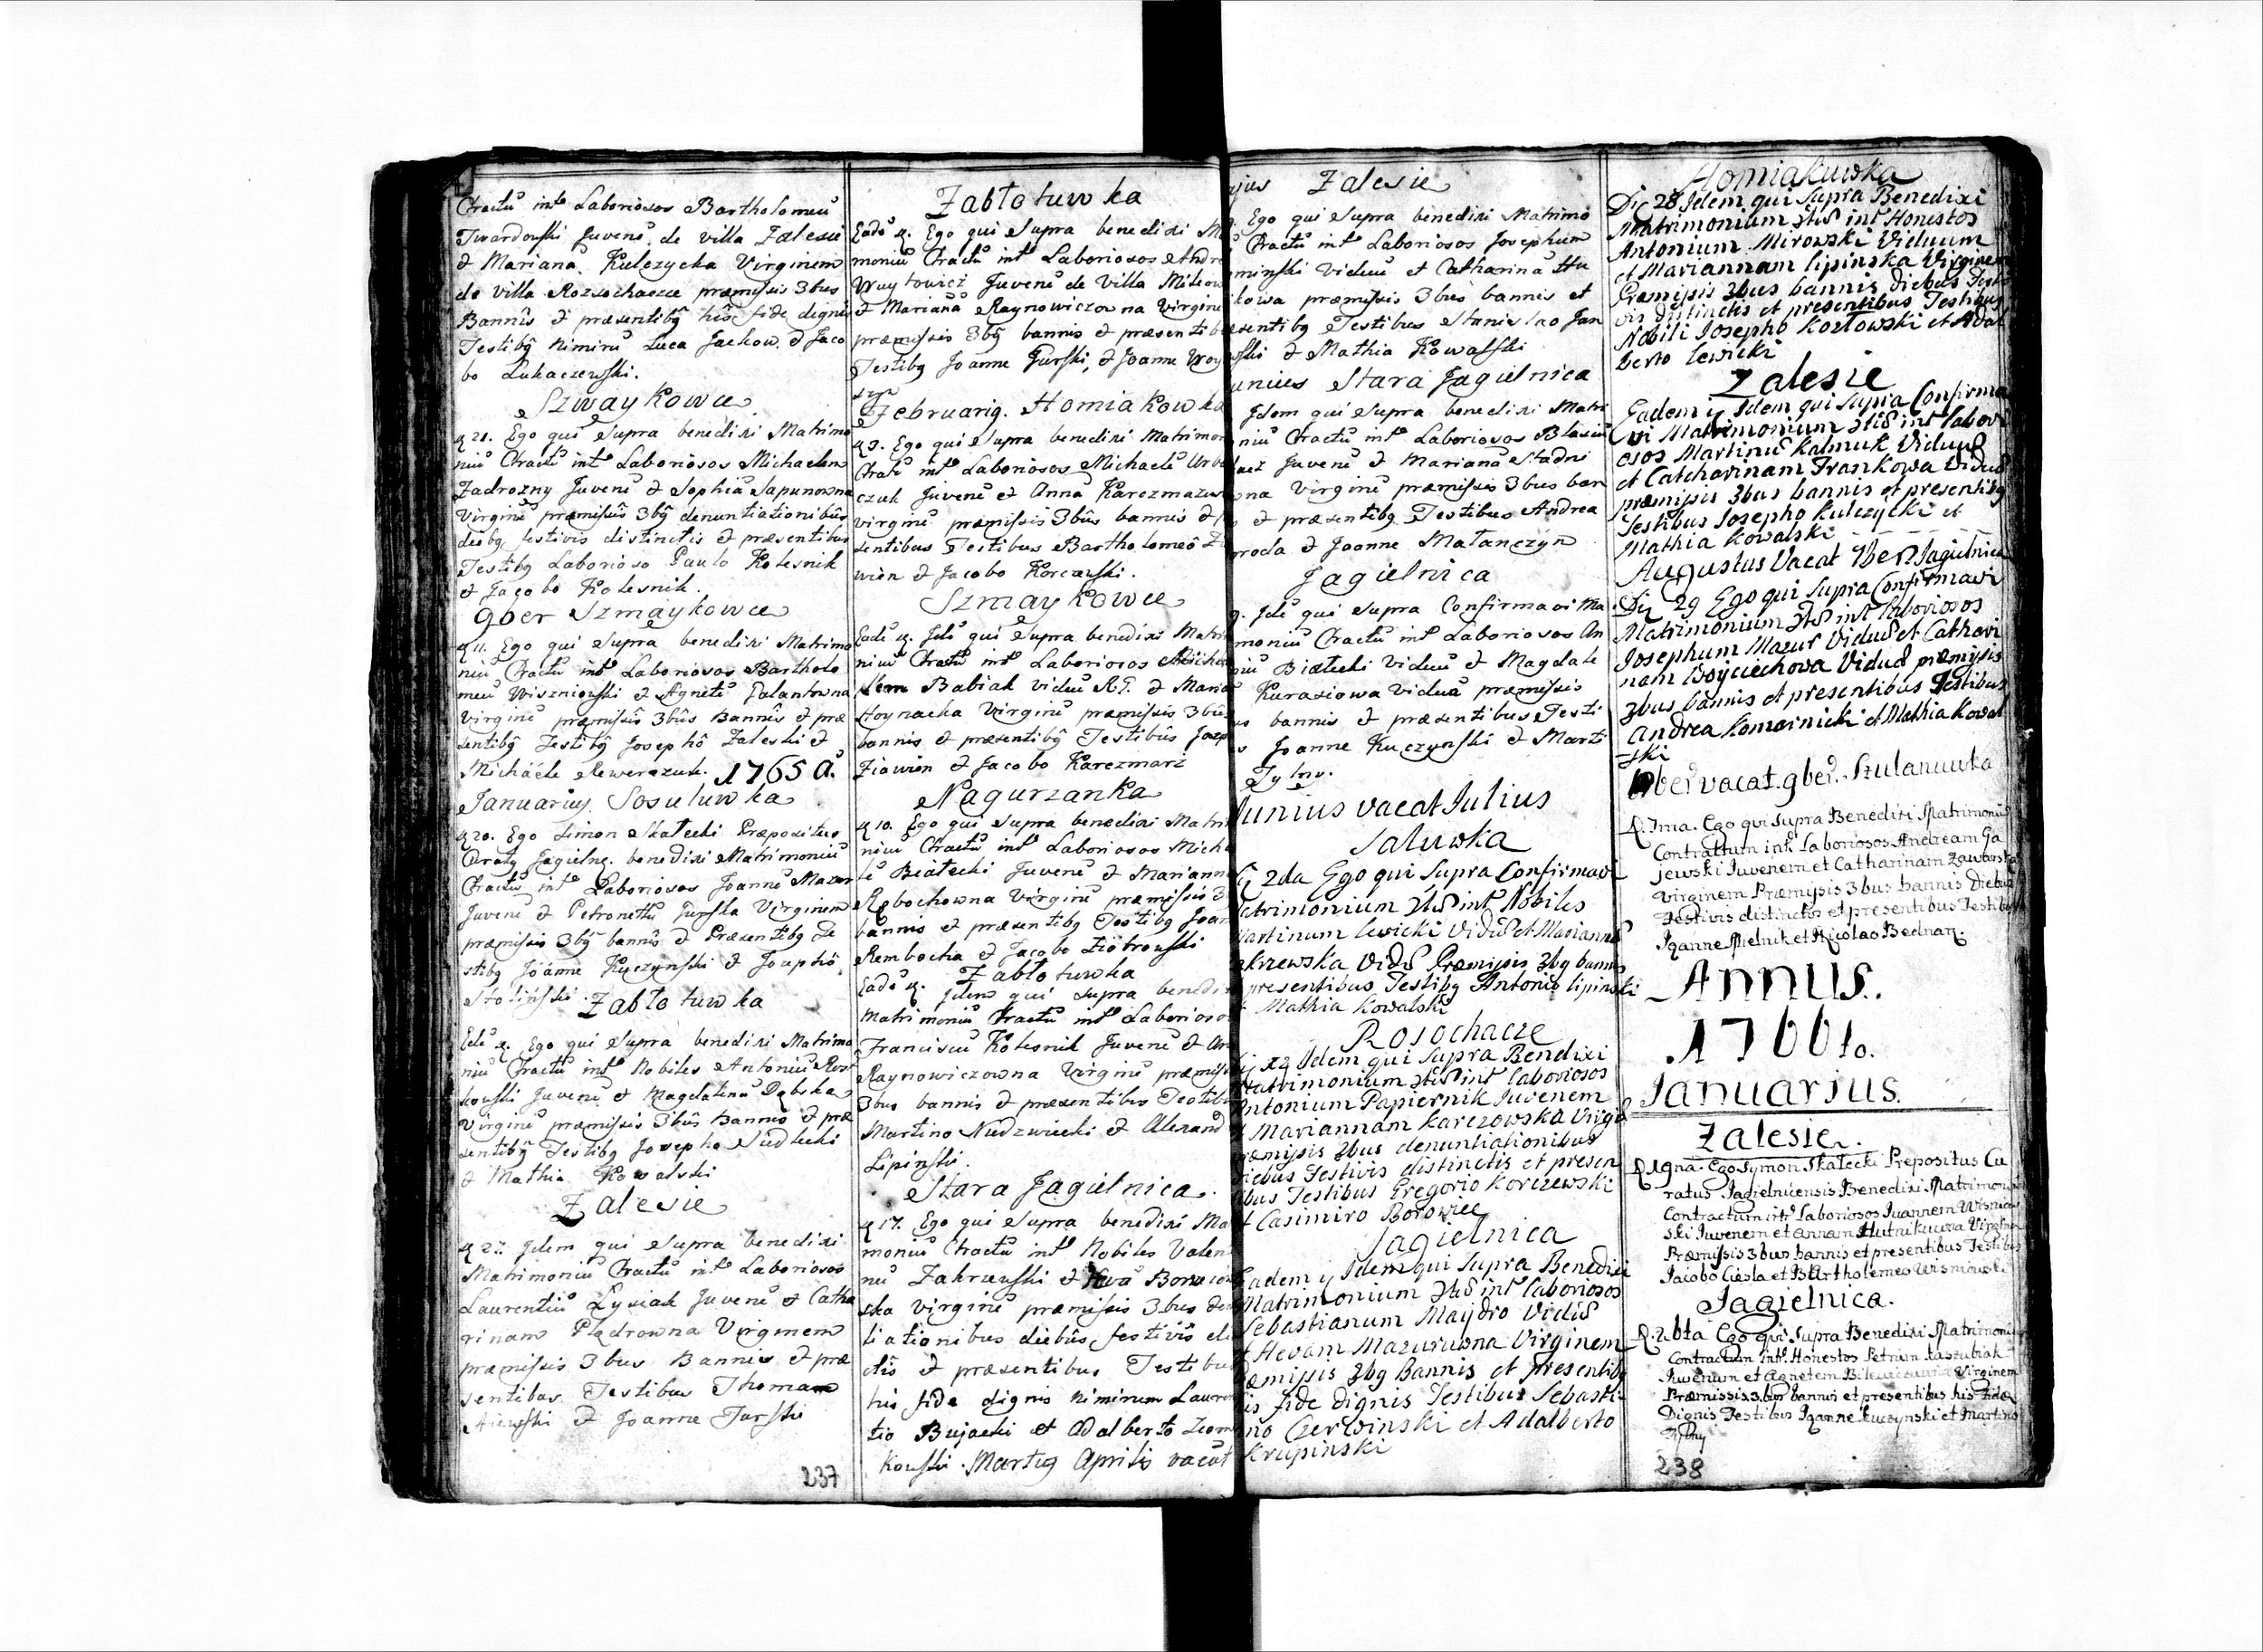 Ctractũ intr Laboriosos Bartholomeũ
Twardowski Juvenẽ de villa Zalesie
& Marianã Kulczycka Virginem
de villa Rozsochacze præmissis 3bus
Bannis & præsentibq his fide dignis
Testibq nimirũ Luca Jachow & Jaco
bo Lukaczewski.
Szmaykowce
21. Ego qui supra benedixi Matrimo
niũ Ctractũ intr Laboriosos Michaelem
Zadrozny Juvenẽ & Sophiã Sapunowna
Virginẽ præmissis 3bq denuntiationibus
diebq festivis distinctis & præsentibus
Testibq Laborioso Paulo Kolesnik
& Jacobo Kolesnik.
9ber Szmaykowce
11. Ego qui supra benedixi Matrimo
niũ Ctractũ intr Laboriosos Bartholo
meũ Wiszniowski & Agnetẽ Galantowna
Virginẽ præmissis 3bus Bannis & præ
sentibq Testibq Josepho Zaleski &
Michaele Rewerczuk. 1765 a.
Januarius Sosuluwka
20. Ego Simon Skałecki Præpositus
Curatq Jagielnc. benedixi Matrimoniũ
Ctractũ intr Laboriosos Joannẽ Mazur
Juvenẽ & Petronellã Turska Virginem
præmissis 3bq bannis & Præsentibq Te
stibq Joanne Kuczynski & Josepho
Stolinski. Zabłotuwka
Ego qui supra benedixi Matrimo
niũ Ctractũ intr Nobiles Antoniũ
Juvenẽ & Magdalenã Dąbska
Virginẽ præmissis 3bus Bannis & præ
sentibq Testibq Josepho Siedlecki
& Mathia Kowalski
Zalesie
27. Idem qui supra benedixi
Matrimoniũ Ctractũ intr Laboriosos
Laurentiũ Lysiak Juvenẽ & Catha
rinam Plądrowna Virginem
præmissis 3bus Bannis & præ
sentibus Testibus Thoma
& Joanne Turski
237
Zabłotuwka
Eadẽ q. Ego qui supra benedixi
moniũ Ctractũ intr Laboriosos
Woytowicz Juvenẽ de Villa
& Marianã Raynowiczowna Virgine
præmissis 3bq bannis & præsentib
Testibq Joanne Turski, & Joanne
Februariq. Homiakowka
3. Ego qui supra benedixi Matrimon
Ctratũ intr Laboriosos Michaelẽ
czuk Juvenẽ et Annã
virginẽ præmissis 3bus bannis &
sentibus Testibus Bartholomeo
& Jacobo Korczowski.
Szmaykowce
Eadẽ q. Idẽ qui supra benedixi Matri
niũ Ctractũ intr Laboriosos
Babiak viduũ R.G. &
Hoynacka Virginẽ præmissis 3bus
bannis & præsentibq Testibus
& Jacobo Karczmarz
Nagurzanka
10. Ego qui supra benedixi Matri
niũ Ctractũ intr Laboriosos Micha
Białecki Juvenẽ & Mariann
Rębochowna Virginẽ præmissis 3
bannis & præsentibq Testibq Joan
Rembocha & Jacobo Ziobrowski
Zabłotuwka
Eadẽ q. Idem qui supra benedi
Matrimoniũ Ctractũ intr Laborioso
Franciscũ Kolesnik Juvenẽ &
Raynowiczowna Virginẽ præmiss
3bus bannis & præsentibus Testib
Martino Niedzwiecki & Alexand
Lipinski.
Stara Jagielnica.
17. Ego qui supra benedixi Ma
moniũ Ctractũ intr Nobiles Valen
Zakrzewski &
ska virginẽ præmissis 3bus
tiationibus diebus festivis
ctis & præsentibus Testibus
his fide dignis nimirum Lauren
tio Bujacki et Adalberto
kowski. Martiq Aprilis vacat
Zalesie
Ego qui supra benedixi Matrimo
Ctractũ intr Laboriosos Josephum
minski viduũ et Catharinã
kowa præmissis 3bus bannis et
sentibq Testibus Stanislao Jan
wski & Mathia Kowalski
unius Stara Jagielnica
Idem qui supra benedixi Matri
niũ Ctractũ intr Laboriosos Blasiũ
Juvenẽ & Marianã Stadni
wna Virginẽ præmissis 3bus ban
& præsentibq Testibus Andrea
& Joanne Matanczyn
Jagielnica
9. Idẽ qui supra Confirmavi Ma
moniũ Ctractũ intr Laboriosos An
Białecki Viduũ & Magdale
Kurasiowa Viduã præmissis
bannis & præsentibus Testi
Joanne Kuczynski & Marti
Tylny.
Junius vacat Julius
Saluwka
2da Ego qui supra Confirmavi
Matrimonium intr Nobiles
Martinum Lewicki Viduũ et Mariannã
Præmissis 3bq bannis
presentibus Testibq Antonio Lipinski
Mathia Kowalski
Rosochacze
Idem qui supra Benedixi
Matrimonium intr laboriosos
Antonium Papiernik Juvenem
Mariannam Karczowska Virgi
Præmissis 3bus denuntiationibus
Diebus Festivis distinctis et presen
tibus Testibus Gregorio Korczewski
et Casimiro Borowiec
Jagielnica
Eadem Idem qui supra Benedixi
Matrimonium intr laboriosos
Sebastianum Maydro Viduũ
et Hevam Mazuruwna Virginem
Præmissis 3bq Bannis et presentibq
is fide dignis Testibus Sebasti
ano Czerwinski et Adalberto
Krupinski
Homiakuwka
Die 28 Idem qui supra Benedixi
Matrimonium intr Honestos
Antonium Mirowski Viduum
et Mariannam lipinska Virginem
Præmissis 3bus bannis diebus Festi
vis distinctis et presentibus Testibus
Nobili Josepho Kozłowski et Adal
berto lewicki
Zalesie
Eadem Idem qui supra Confirma
vi Matrimonium intr labori
osos Martinũ Kalmuk Viduũ
et Catcharinam Frankowa Viduã
præmissis 3bus bannis et presentibq
Testibus Josepho Kulczycki et
Mathia Kowalski
Augustus Vacat 7ber Jagielnica
Die 29 Ego qui supra Confirmavi
Matrimonium intr laboriosos
Josephum Mazur Viduũ et Cathari
nam Woyciechowa Viduã præmissis
3bus bannis et presentibus Testibus
Andrea Komarnicki et Mathia Kowal
ski
8ber vacat. 9ber. Szulanuwka
D. 1ma. Ego qui supra Benedixi Matrimoniũ
Contractum intr Laboriosos Andream Ga
jewski Juvenem et Catharinam
Virginem Præmissis 3bus bannis Diebus
Festivis distinctis et presentibus Testibus
Joanne Mielnik et Nicolao Bednarz.
Annus.
1766to.
Januarius.
Zalesie.
D. 19na. Ego Symon Skałecki Prepositus Cu
ratus Jagielnicensis Benedixi Matrimoni
Contractum intr Laboriosos Joannem Wisniow
ski Juvenem et Annam Hutnikuwna Virginem
Præmissis 3bus bannis et presentibus Testibus
Jacobo Ciesla et Bartholemeo Wisniowski
Jagielnica.
D. 26ta Ego qui supra Benedixi Matrimoniũ
Contractum intr. Honestos Petrum Kaszubiak
Juvenum et Agnetem Virginem
Præmissis 3bus bannis et presentibus his Fide
Dignis Testibus Joanne Kuczynski et Martino
Tylny
238